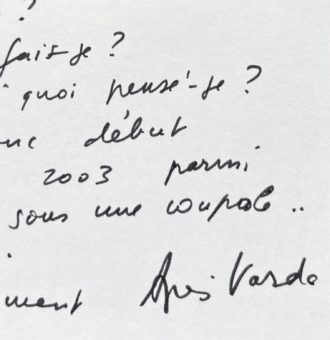 ?
fais-je ?
quoi pensé-je ?
début
2003 parmi
sous une coupole ..
ment Agnès Varda